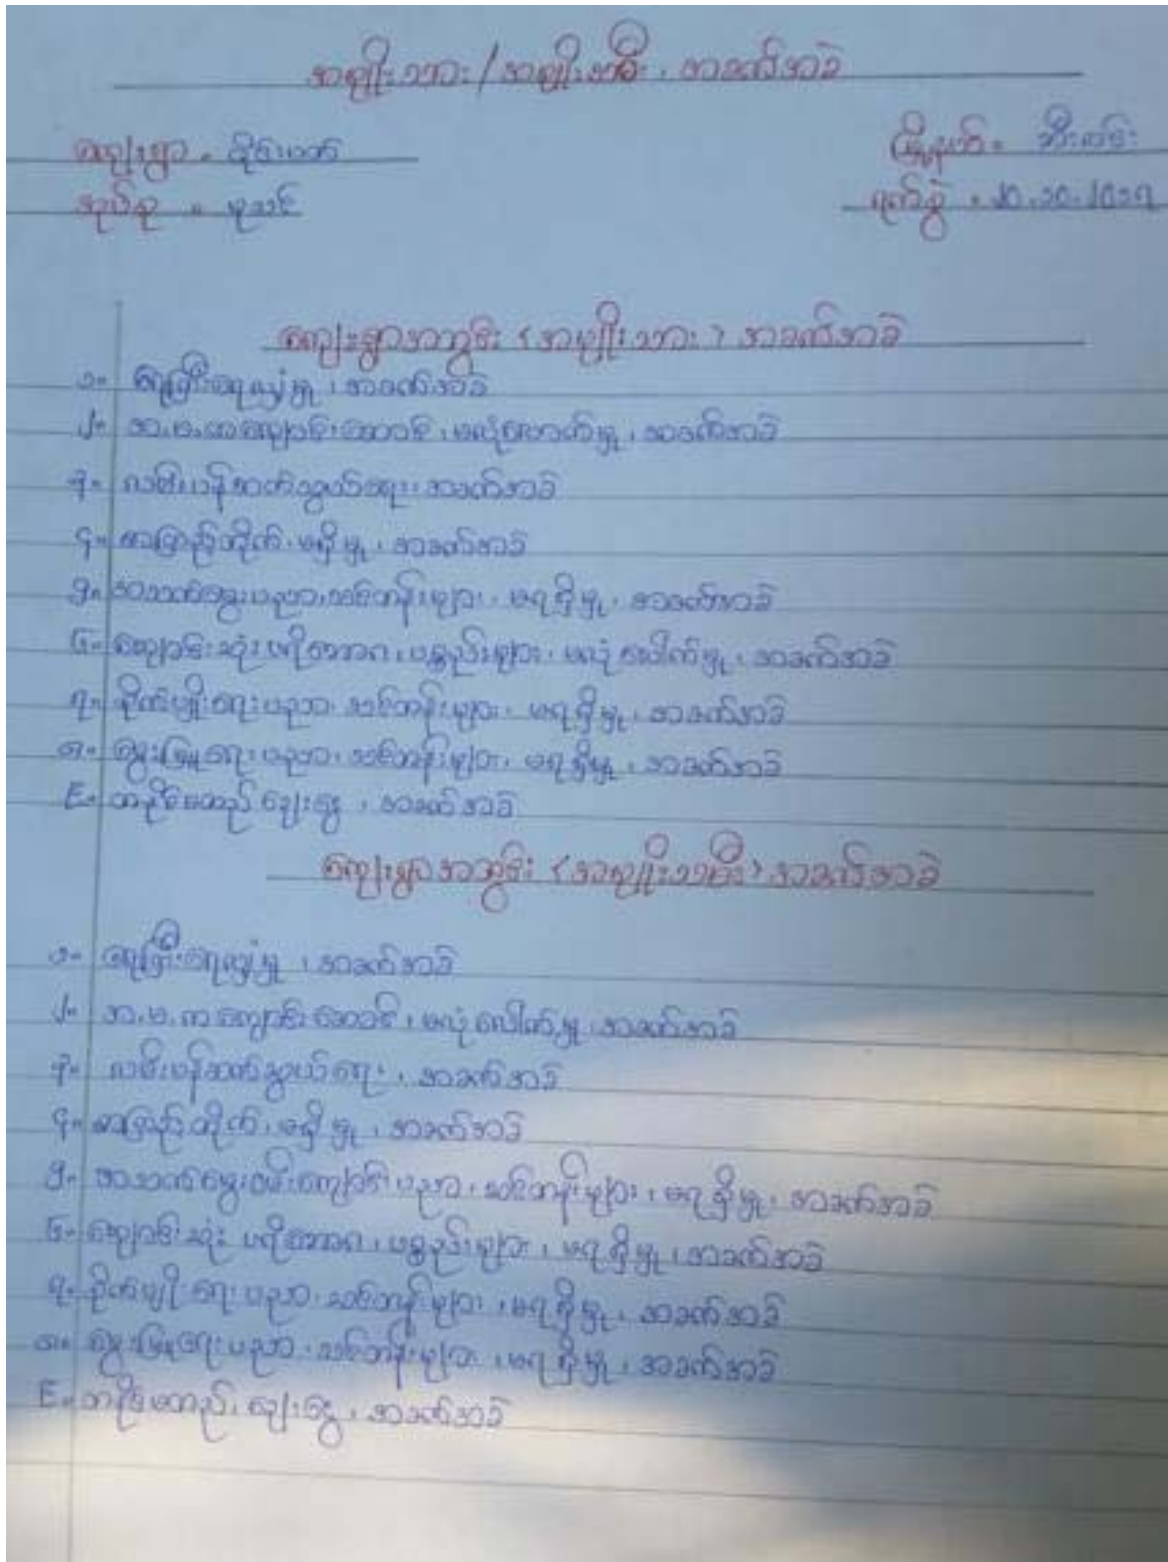 အမျိုးသား/အမျိုးသမီး၊ အခက်အခဲ
ကျေးရွာ = ထိုင်းပတ် မြို့နယ် = ဆီးလင်း
အုပ်စု = မူသင် ရက်စွဲ = ၂၀.၁၀.၂၀၁၇
ကျေးရွာအတွင်း <အမျိုးသား> အခက်အခဲ
၁။ ရေကြီးရေလျှံမှု၊ အခက်အခဲ
၂။ အ.မ.က ကျောင်းဆောင်၊ မလုံလောက်မှု၊ အခက်အခဲ
၃။ လမ်းပန်းဆက်သွယ်ရေး၊ အခက်အခဲ
၄။ စာကြည့်တိုက်၊ မရှိမှု၊ အခက်အခဲ
၅။ အသက်မွေးပညာ၊ သင်တန်းများ၊ မရရှိမှု၊ အခက်အခဲ
၆။ ကျောင်းသုံး ပရိဘောဂ၊ ပစ္စည်းများ၊ မလုံလေါက်မှု၊ အခက်အခဲ
၇။ စိုက်ပျိုးရေးပညာ၊ သင်တန်းများ၊ မရရှိမှု၊ အခက်အခဲ
၈။ မွေးမြူရေးပညာ၊ သင်တန်းများ၊ မရရှိမှု၊ အခက်အခဲ
၉။ တနိုင်မတည် ချေးငွေ၊ အခက်အခဲ
ကျေးရွာအတွင်း <အမျိုးသမီး> အခက်အခဲ
၁။ ရေကြီးရေလျှံမှု၊ အခက်အခဲ
၂။ အ.မ.က ကျောင်းဆောင်၊ မလုံလေါက်မှု၊ အခက်အခဲ
၃။ လမ်းပန်းဆက်သွယ်ရေး၊ အခက်အခဲ
၄။ စာကြည့်တိုက်၊ မရှိမှု၊ အခက်အခဲ
၅။ အသက်မွေးဝမ်းကျောင်းပညာ၊ သင်တန်းများ၊ မရရှိမှု၊ အခက်အခဲ
၆။ ကျောင်းသုံး ပရိဘောဂ၊ ပစ္စည်းများ၊ မရရှိမှု၊ အခက်အခဲ
၇။ စိုက်ပျိုးရေးပညာ၊ သင်တန်းများ၊ မရရှိမှု၊ အခက်အခဲ
၈။ မွေးမြူရေးပညာ၊ သင်တန်းများ၊ မရရှိမှု၊ အခက်အခဲ
၉။ တနိုင်မတည်၊ ချေးငွေ၊ အခက်အခဲ